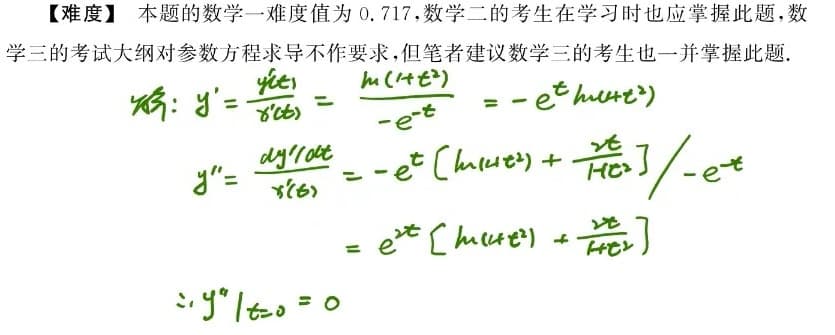 【难度】 本题的数学一难度值为 0.717,数学二的考生在学习时也应掌握此题,数
学三的考试大纲对参数方程求导不作要求,但笔者建议数学三的考生也一并掌握此题.
解: y' = y'(t) / x'(t) = ln(1+t²) / -e^{-t} = -e^t ln(1+t²)
y'' = dy'/dt / x'(t) = -e^t [ln(1+t²) + 2t/(1+t²)] / -e^{-t}
= e^{2t} [ln(1+t²) + 2t/(1+t²)]
∴ y''|_{t=0} = 0